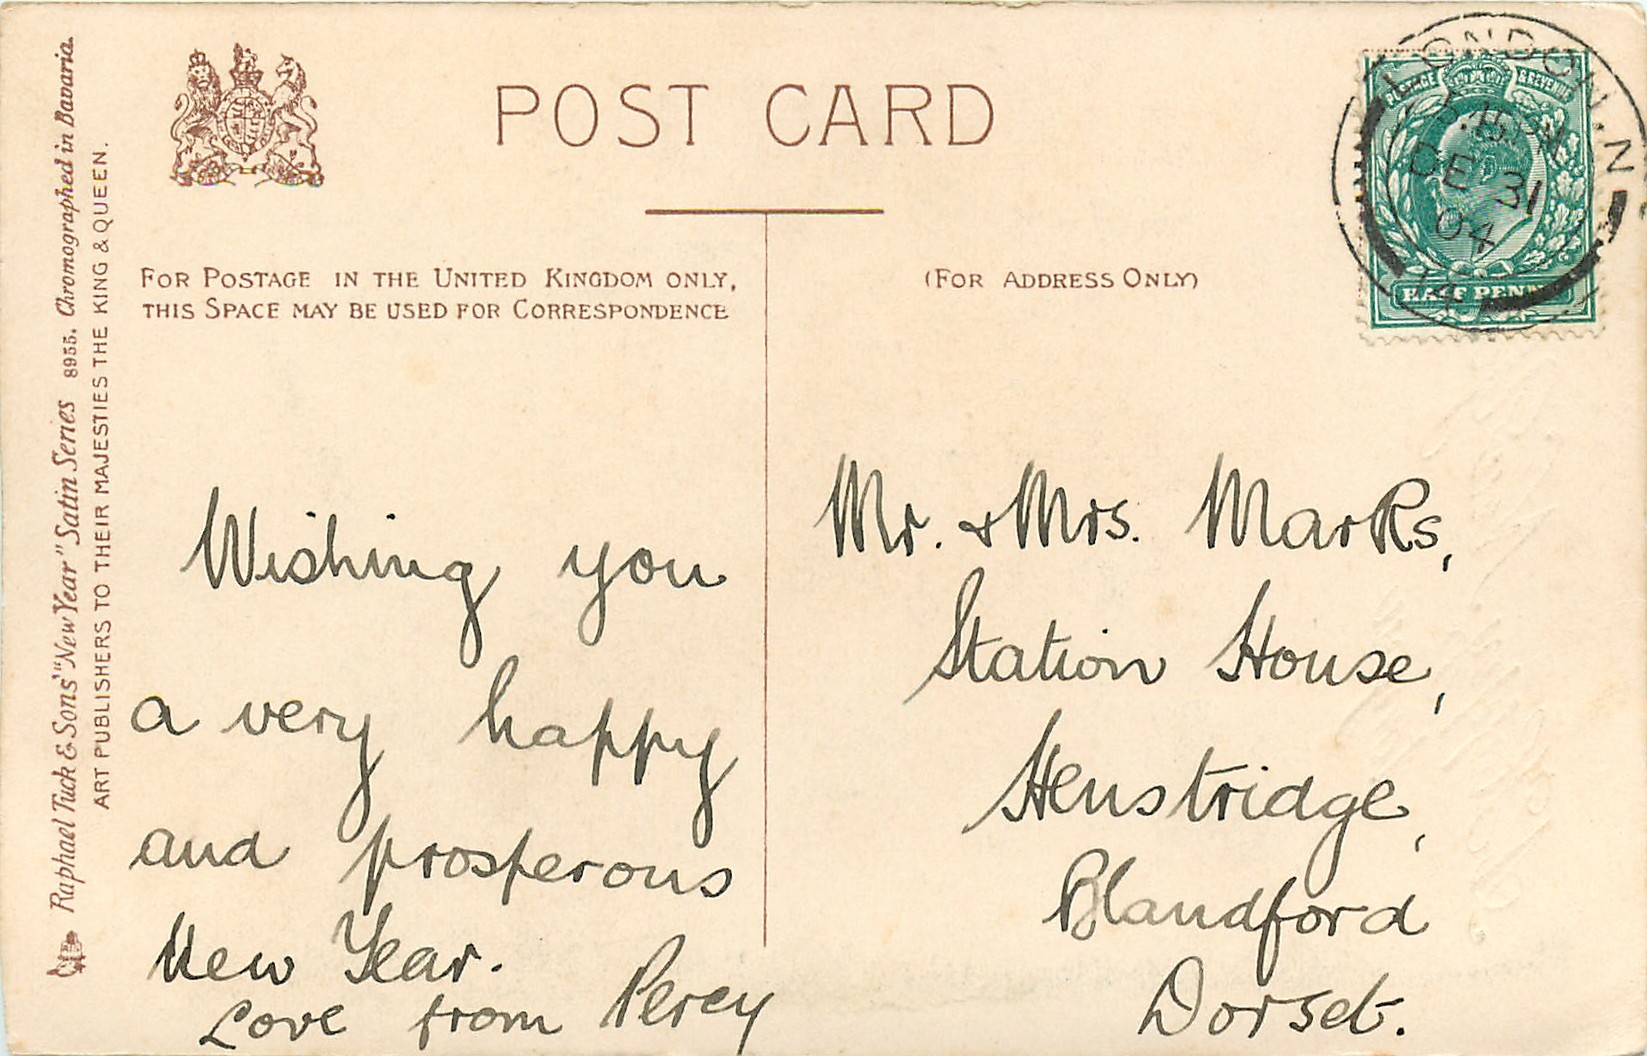 POST CARD
FOR POSTAGE IN THE UNITED KINGDOM ONLY,
THIS SPACE MAY BE USED FOR CORRESPONDENCE
(FOR ADDRESS ONLY)
Raphael Tuck & Sons' "New Year" Satin Series 8955. Chromographed in Bavaria.
ART PUBLISHERS TO THEIR MAJESTIES THE KING & QUEEN.
POSTAGE & REVENUE
HALF PENNY
LONDON. N
DE 31
04
Wishing you
a very happy
and prosperous
New Year.
Love from Percy
Mr. & Mrs. Marks,
Station House,
Henstridge,
Blandford
Dorset.